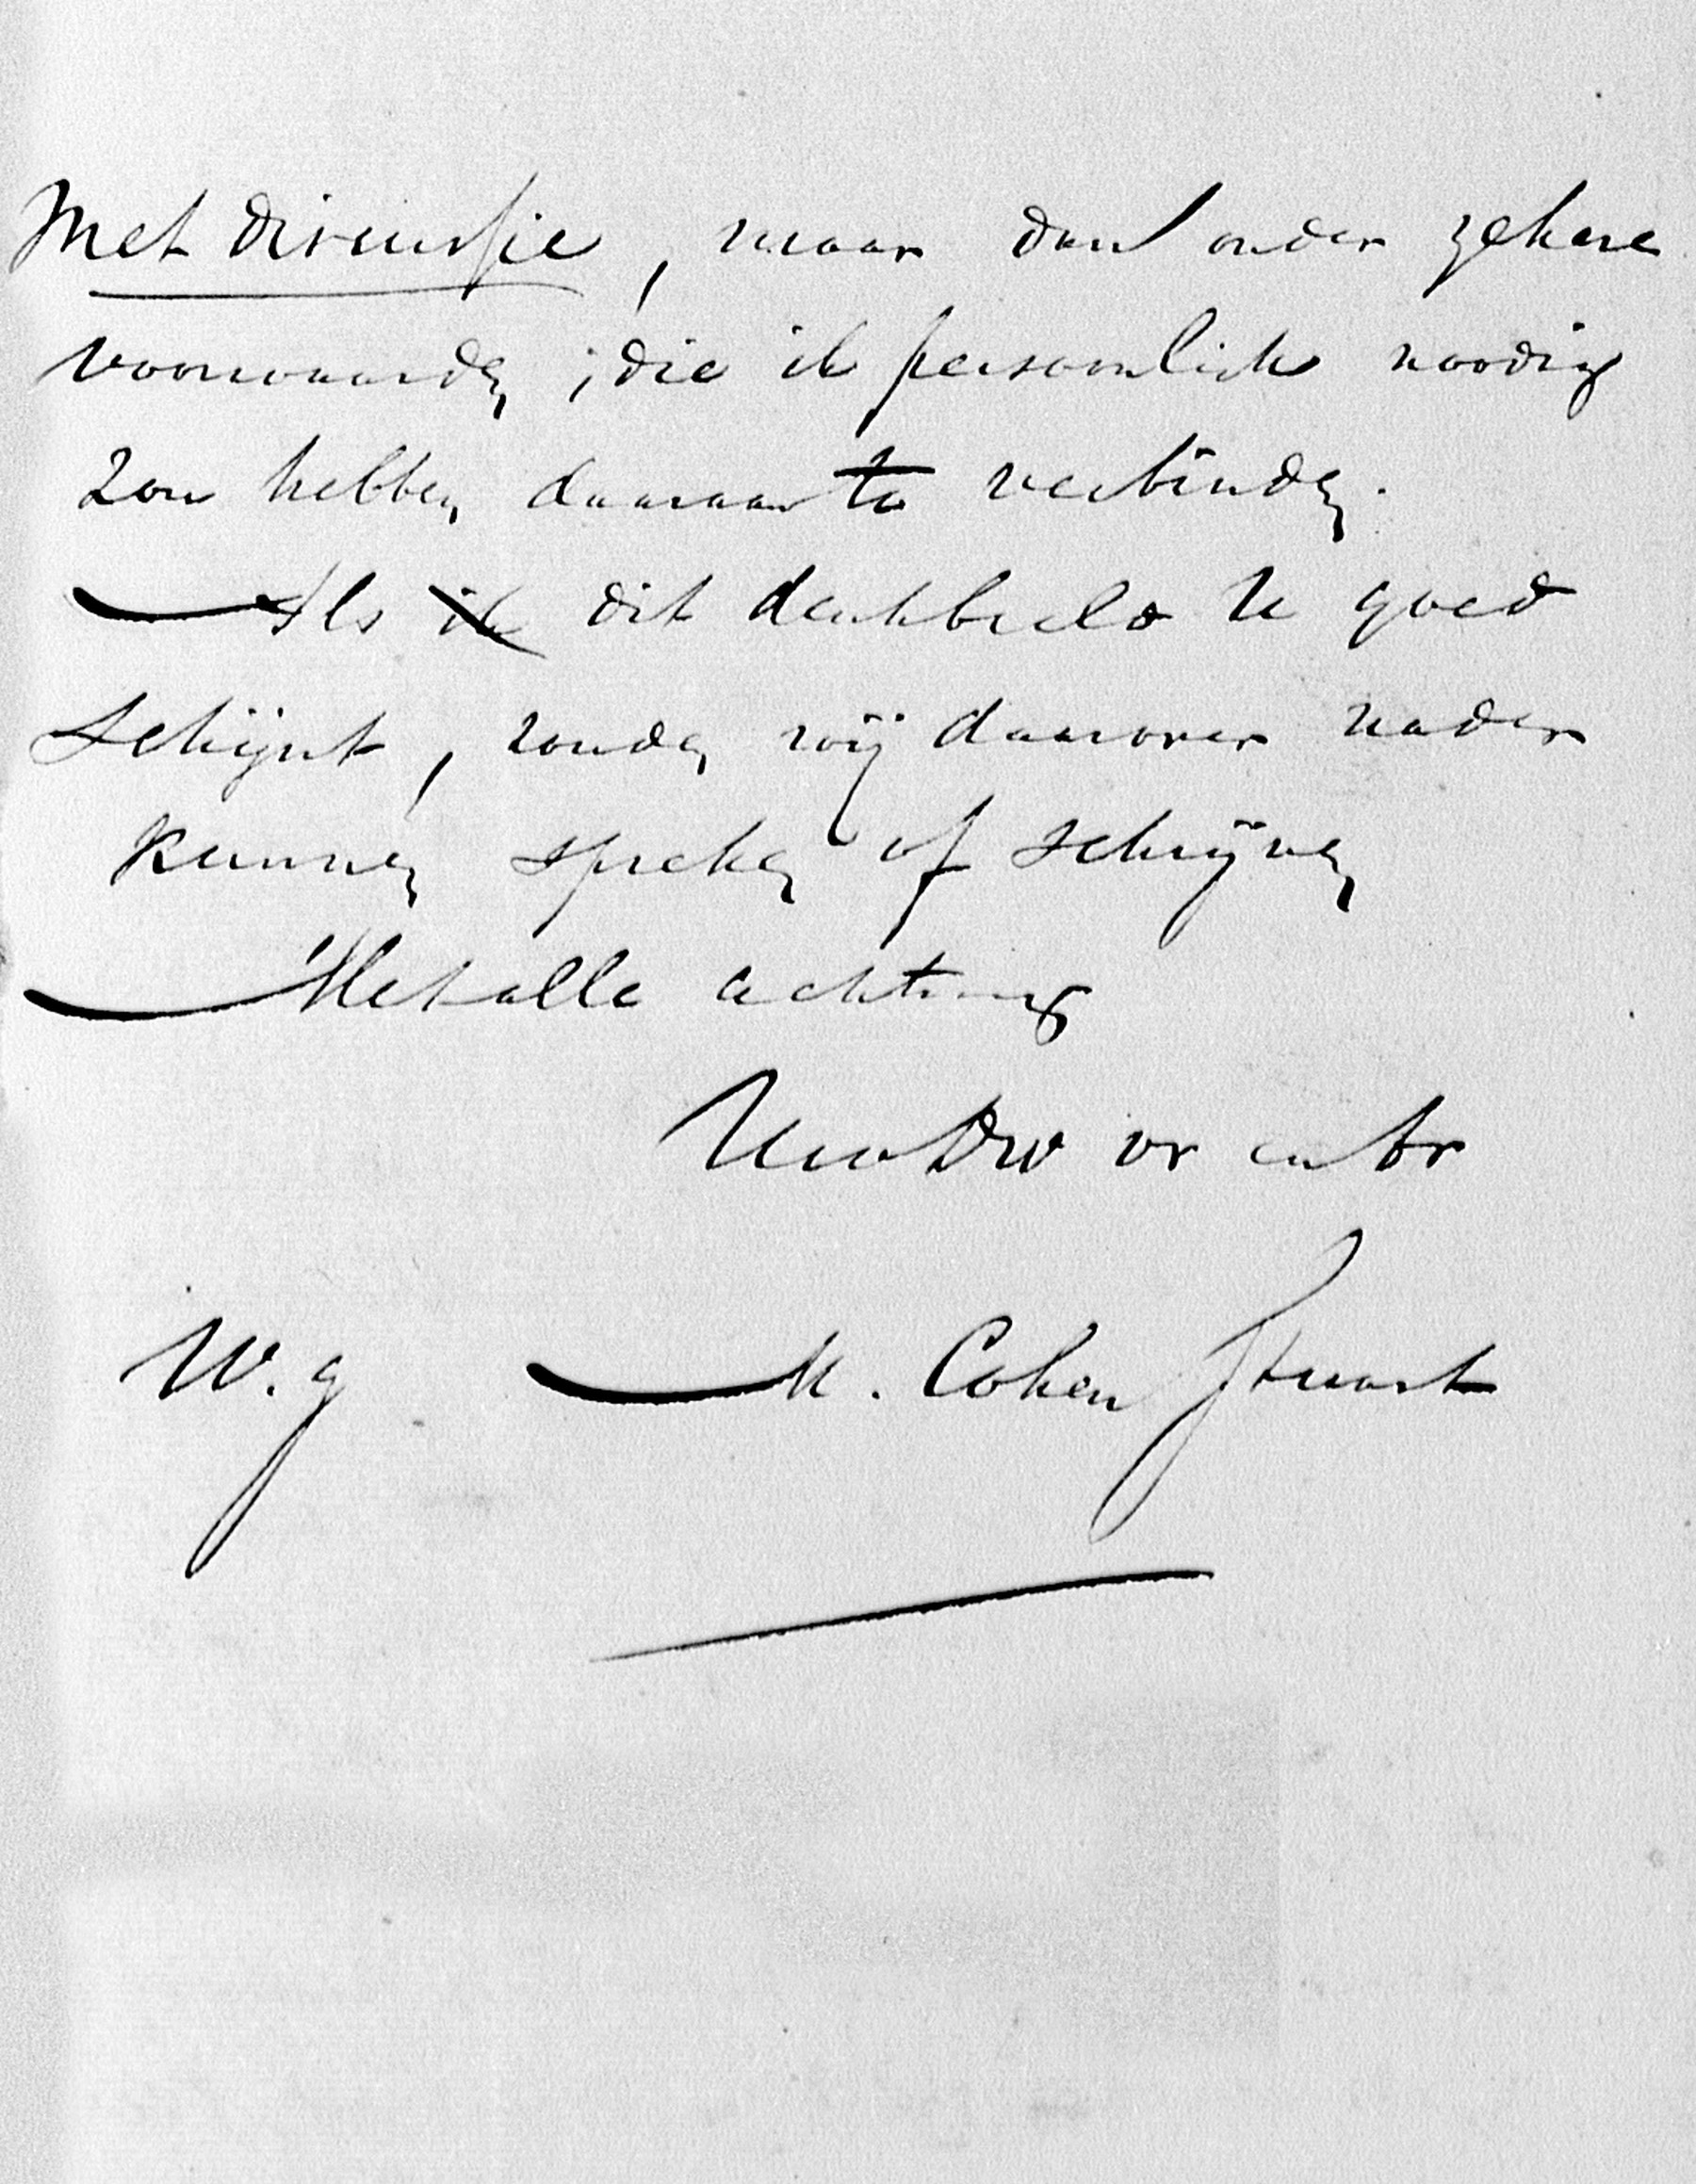 Met discussie, maar dan onder zekere
voorwaarden, die ik persoonlijk noodig
zou hebben daaraan te verbinden.
Als ik dit denkbeeld U goed
schijnt, zouden wij daarover nader
kunnen spreken of schrijven
Met alle achting
Uw Dw vr en br
W.g M. Cohen Stuart